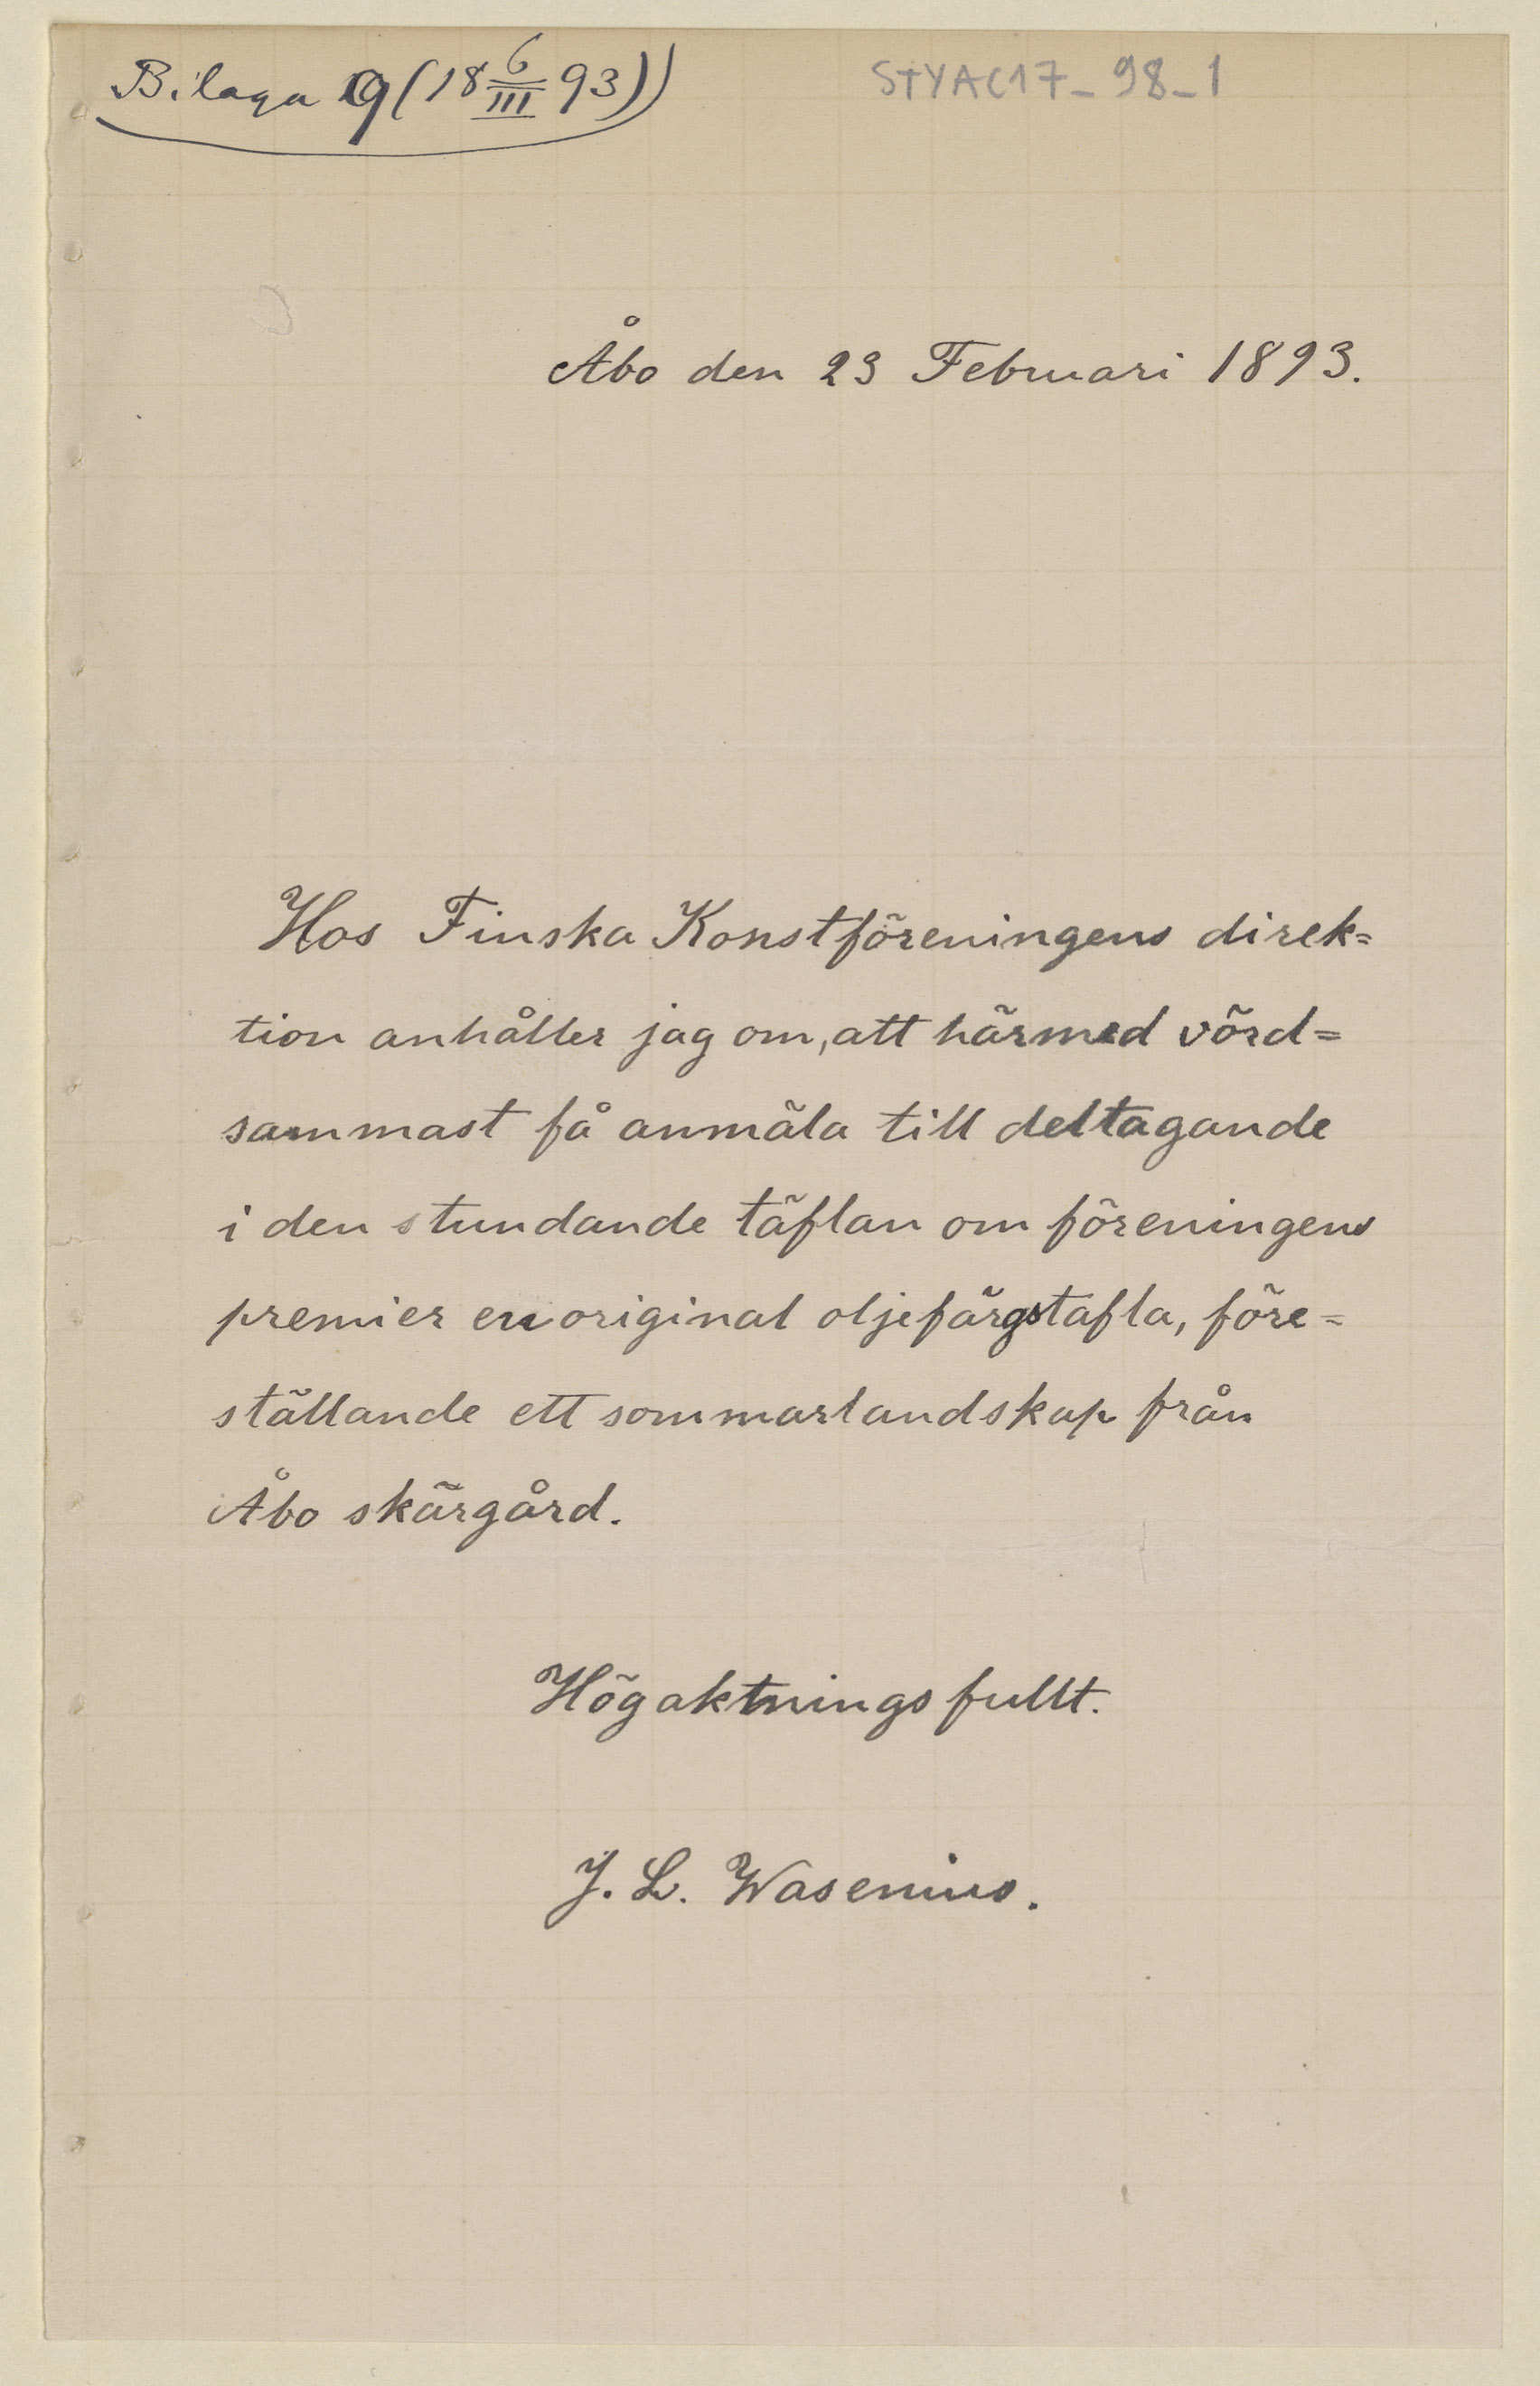 Bilaga 9 (18 6/III 93)
STYAC17_98_1
Åbo den 23 Februari 1893.
Hos Finska Konstföreningens direk=
tion anhåller jag om, att härmed vörd=
sammast få anmäla till deltagande
i den stundande täflan om föreningens
premier en original oljefärgstafla, före=
ställande ett sommarlandskap från
Åbo skärgård.
Högaktningsfullt.
J. L. Wasenius.